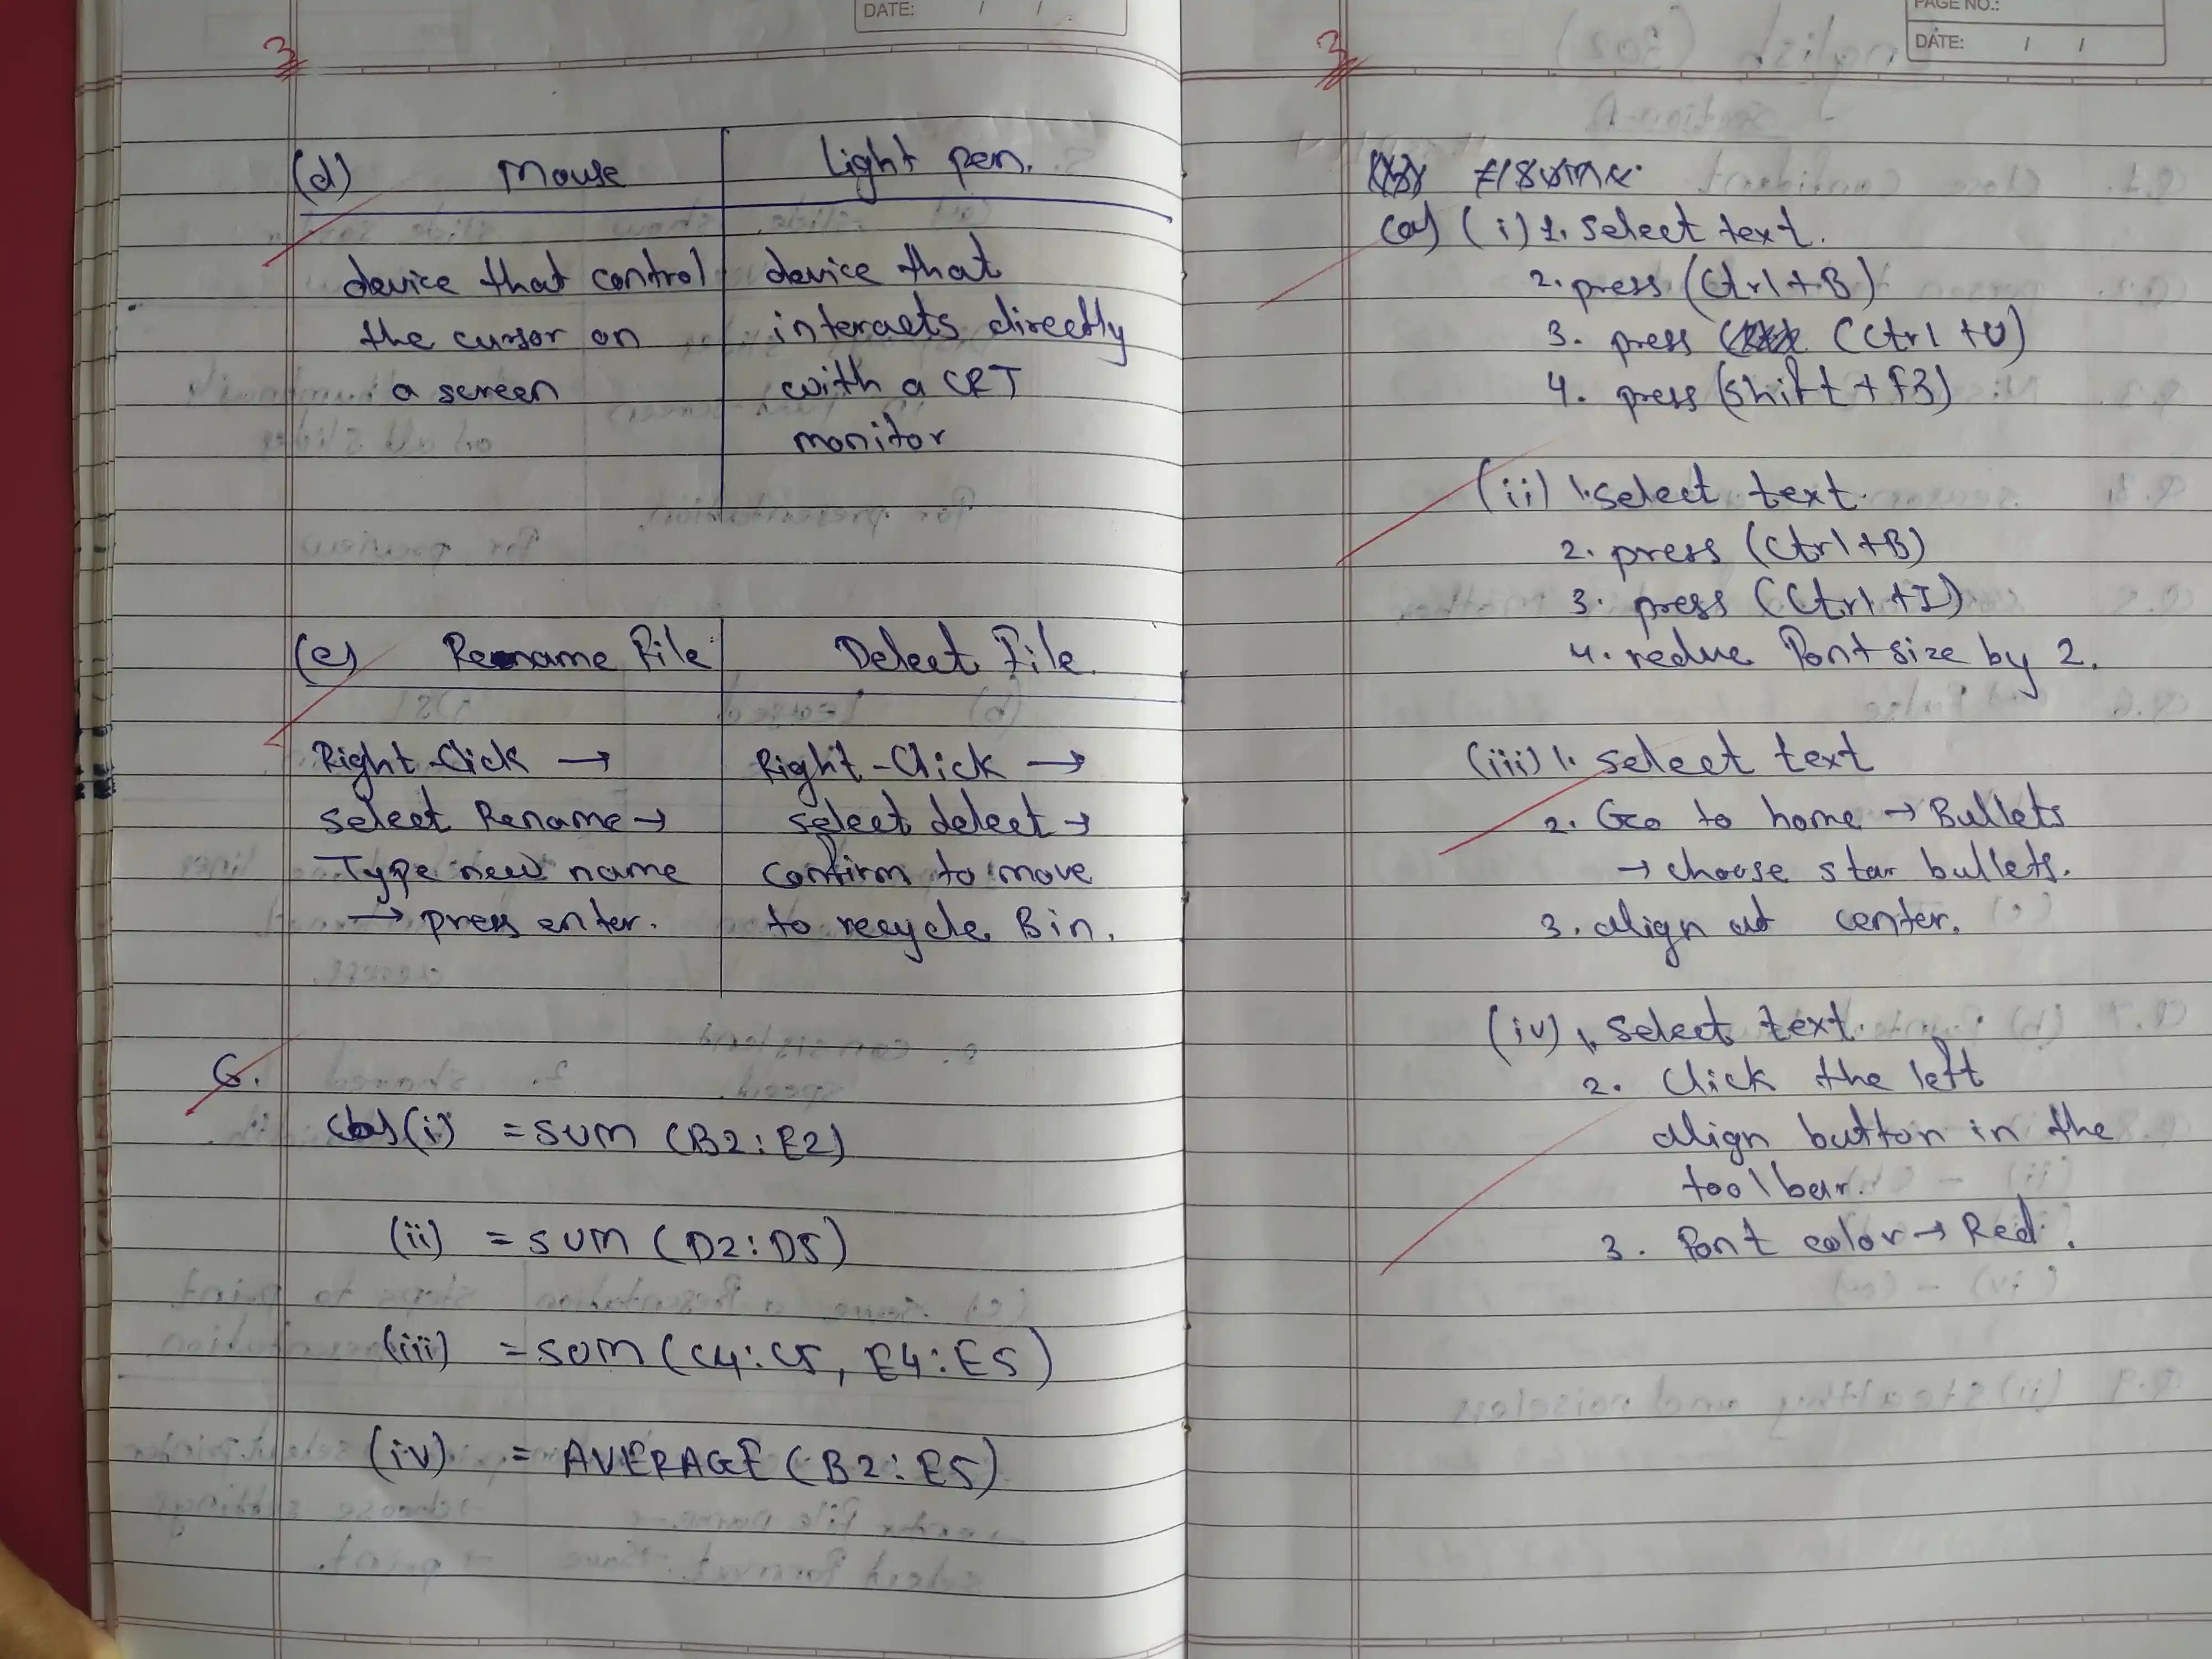 DATE: / /
3
(d) Mouse | Light pen.
device that control | device that
the cursor on | interacts directly
a screen | with a CRT
monitor
(e) Rename File | Delect File.
Right-Click → | Right-Click →
select Rename → | select delect →
Type new name | Confirm to move
→ press enter. | to recycle Bin.
6.
(b) (i) =SUM (B2:E2)
(ii) = SUM (D2:D5)
(iii) =SUM (C4:C5, E4:E5)
(iv) = AVERAGE (B2:E5)
PAGE NO.:
DATE: / /
3
(a) (i) 1. Select text.
2. press (Ctrl+B)
3. press (Ctrl+U)
4. press (Shift + F3)
(ii) 1. Select text.
2. press (Ctrl+B)
3. press (Ctrl+I)
4. reduce Font size by 2.
(iii) 1. Select text
2. Go to home → Bullets
→ choose star bullets.
3. align at center.
(iv) 1. Select text.
2. Click the left
align button in the
toolbar.
3. Font color → Red.